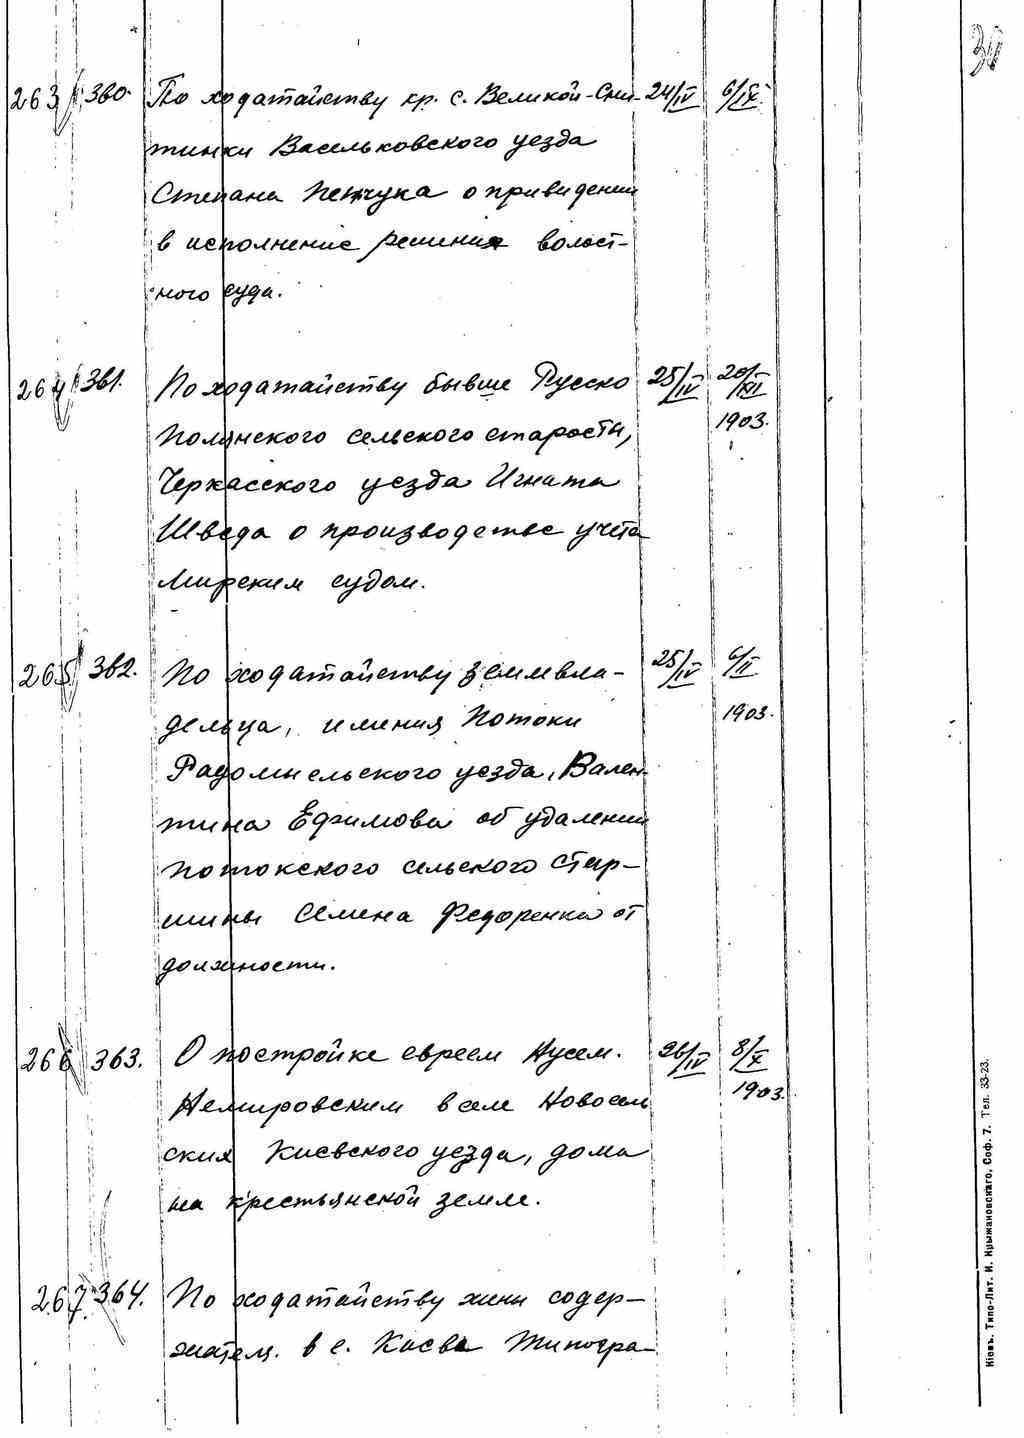 30
263 380. По ходатайству кр. с. Великой-Сни- 24/IV 6/IX.
тинки Васильковского уезда
Степана Петчука о приведении
в исполнение решения волост-
ного суда.
264 381. По ходатайству бывше Русско 25/IV 20/XII
1903.
Полянского сельского старосты,
Черкасского уезда Игната
Шведа о производстве учета
Мирским судом.
265 382. По ходатайству землевла- 25/IV 6/II
1903.
дельца, имения Потоки
Радомысльского уезда, Вален-
тина Ефимова об удалении
Потокского сельского Стар-
шины Семена Федоренко от
должности.
266 383. О постройке евреем Нусем. 26/IV 8/X
1903.
Немировским в селе Новосель
ския Киевского уезда, дома
на крестьянской земле.
267. 364. По ходатайству жены содер-
жател. в г. Киеве Типогра-
Кіевъ. Типо-Лит. И. Крыжановскаго, Соф. 7. Тел. 33-23.